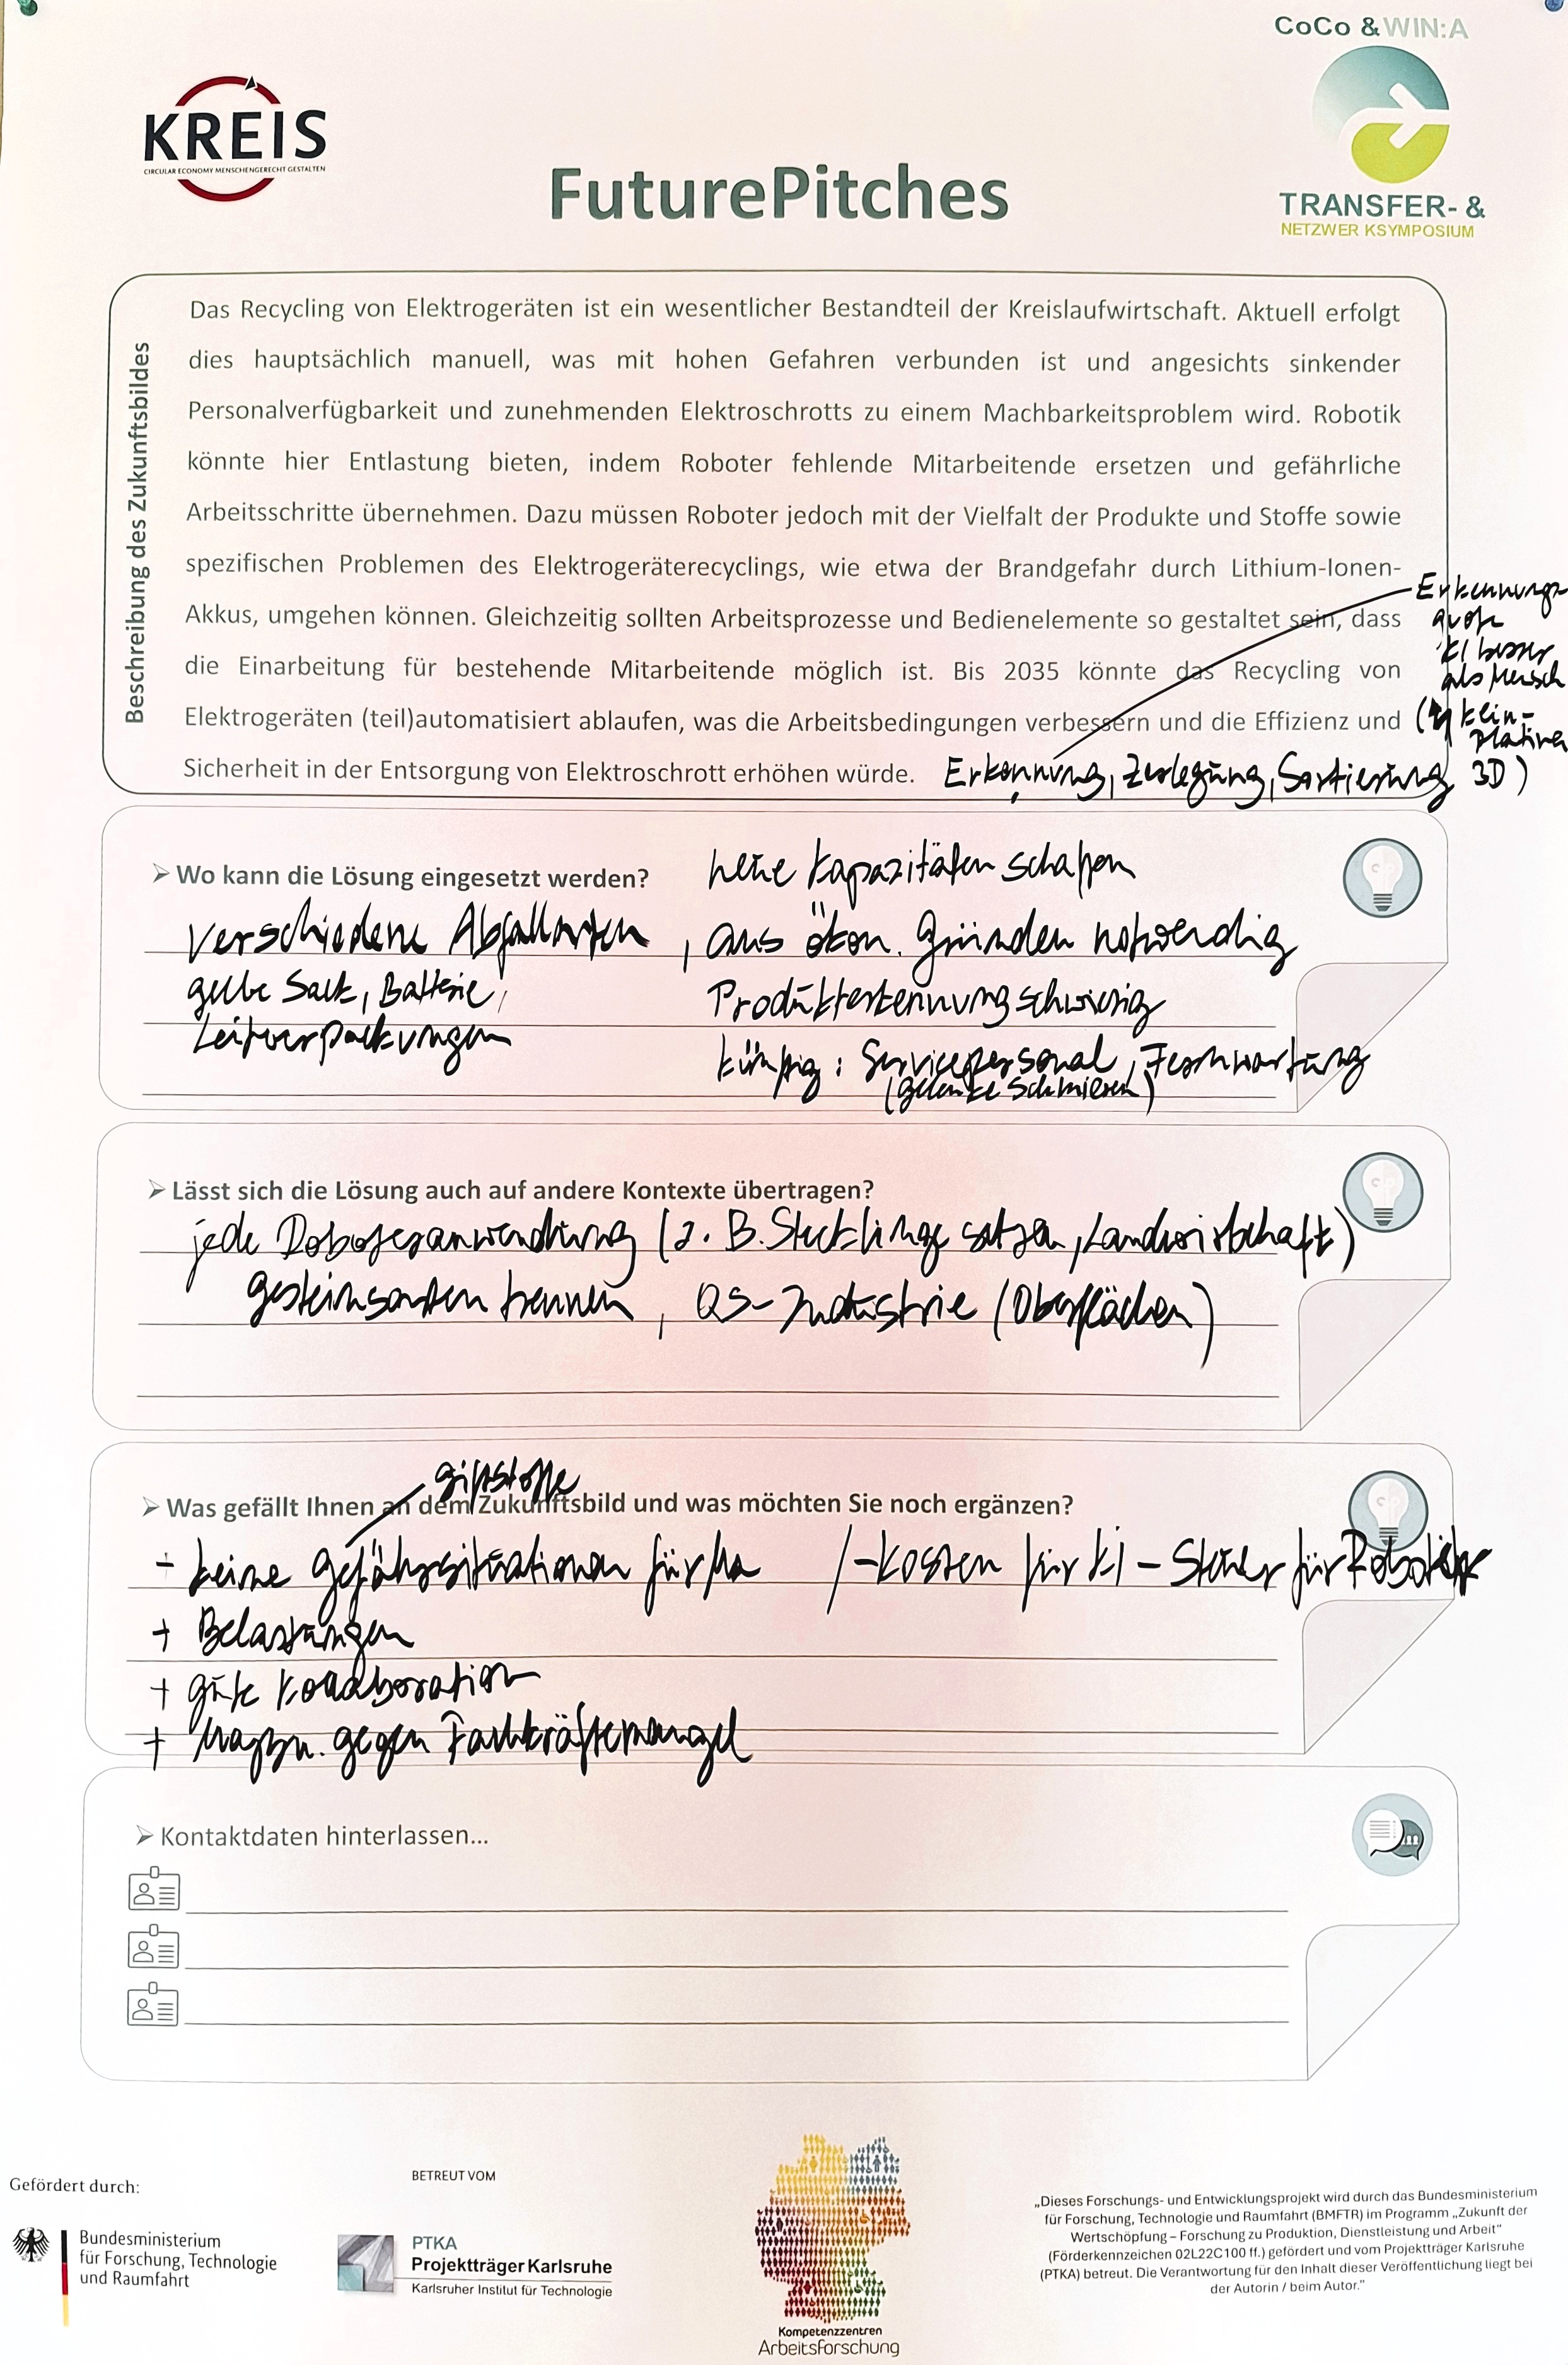 CoCo & WIN:A
KREIS
CIRCULAR ECONOMY MENSCHENGERECHT GESTALTEN
TRANSFER- &
NETZWERKSYMPOSIUM
FuturePitches
Beschreibung des Zukunftsbildes
Das Recycling von Elektrogeräten ist ein wesentlicher Bestandteil der Kreislaufwirtschaft. Aktuell erfolgt
dies hauptsächlich manuell, was mit hohen Gefahren verbunden ist und angesichts sinkender
Personalverfügbarkeit und zunehmenden Elektroschrotts zu einem Machbarkeitsproblem wird. Robotik
könnte hier Entlastung bieten, indem Roboter fehlende Mitarbeitende ersetzen und gefährliche
Arbeitsschritte übernehmen. Dazu müssen Roboter jedoch mit der Vielfalt der Produkte und Stoffe sowie
spezifischen Problemen des Elektrogeräterecyclings, wie etwa der Brandgefahr durch Lithium-Ionen-
Akkus, umgehen können. Gleichzeitig sollten Arbeitsprozesse und Bedienelemente so gestaltet sein, dass
die Einarbeitung für bestehende Mitarbeitende möglich ist. Bis 2035 könnte das Recycling von
Elektrogeräten (teil)automatisiert ablaufen, was die Arbeitsbedingungen verbessern und die Effizienz und
Sicherheit in der Entsorgung von Elektroschrott erhöhen würde.
Erkennung, Zerlegung, Sortierung
Erkennungs-
quote
KI besser
als Mensch
klein-
platinen
3D)
➢ Wo kann die Lösung eingesetzt werden?
neue Kapazitäten schaffen
verschiedene Abfallarten, aus ökon. Gründen notwendig
gelbe Sack, Batterie,
Produkterkennung schwierig
Leitverpackungen
künftig: Servicepersonal, Fernwartung
(Gelenke schmieren)
➢ Lässt sich die Lösung auch auf andere Kontexte übertragen?
jede Roboteranwendung (z. B. Stecklinge setzen, Landwirtschaft)
Gesteinsarten trennen, QS-Industrie (Oberflächen)
➢ Was gefällt Ihnen an dem Zukunftsbild und was möchten Sie noch ergänzen?
Giftstoffe
+ keine Gefahrsituationen für MA / - Kosten für KI - Steuer für Roboter
+ Belastungen
+ gute Kollaboration
+ gegen Fachkräftemangel
➢ Kontaktdaten hinterlassen...
Gefördert durch:
Bundesministerium
für Forschung, Technologie
und Raumfahrt
BETREUT VOM
PTKA
Projektträger Karlsruhe
Karlsruher Institut für Technologie
Kompetenzzentren
Arbeitsforschung
„Dieses Forschungs- und Entwicklungsprojekt wird durch das Bundesministerium
für Forschung, Technologie und Raumfahrt (BMFTR) im Programm „Zukunft der
Wertschöpfung – Forschung zu Produktion, Dienstleistung und Arbeit"
(Förderkennzeichen 02L22C100 ff.) gefördert und vom Projektträger Karlsruhe
(PTKA) betreut. Die Verantwortung für den Inhalt dieser Veröffentlichung liegt bei
der Autorin / beim Autor."